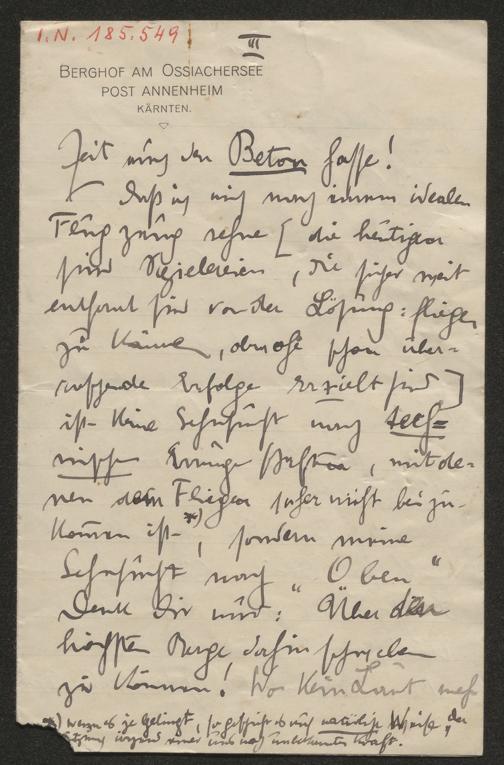 I.N. 185.549
III
BERGHOF AM OSSIACHERSEE
POST ANNENHEIM
KÄRNTEN.
Zeit und den Beton hasse!
Daß ich mich nach einem idealen
Flugzeug sehne [ die heutigen
sind Spielereien, die sicher weit
entfernt sind von der Lösung: fliegen
zu können, obwohl schon über-
raschende Erfolge erzielt sind ]
ist keine Sehnsucht nach tech-
nischen Errungenschaften, mit de-
nen dem Fliegen sicher nicht beizu-
kommen ist *), sondern meine
Sehnsucht nach "Oben"
Denk Dir nur: Über den
höchsten Berge dahin schweben
zu können! Wo kein Laut mehr
*) wenn es je gelingt, so geschieht es auf natürliche Weise, der
irgend einer uns noch unbekannten Kraft.